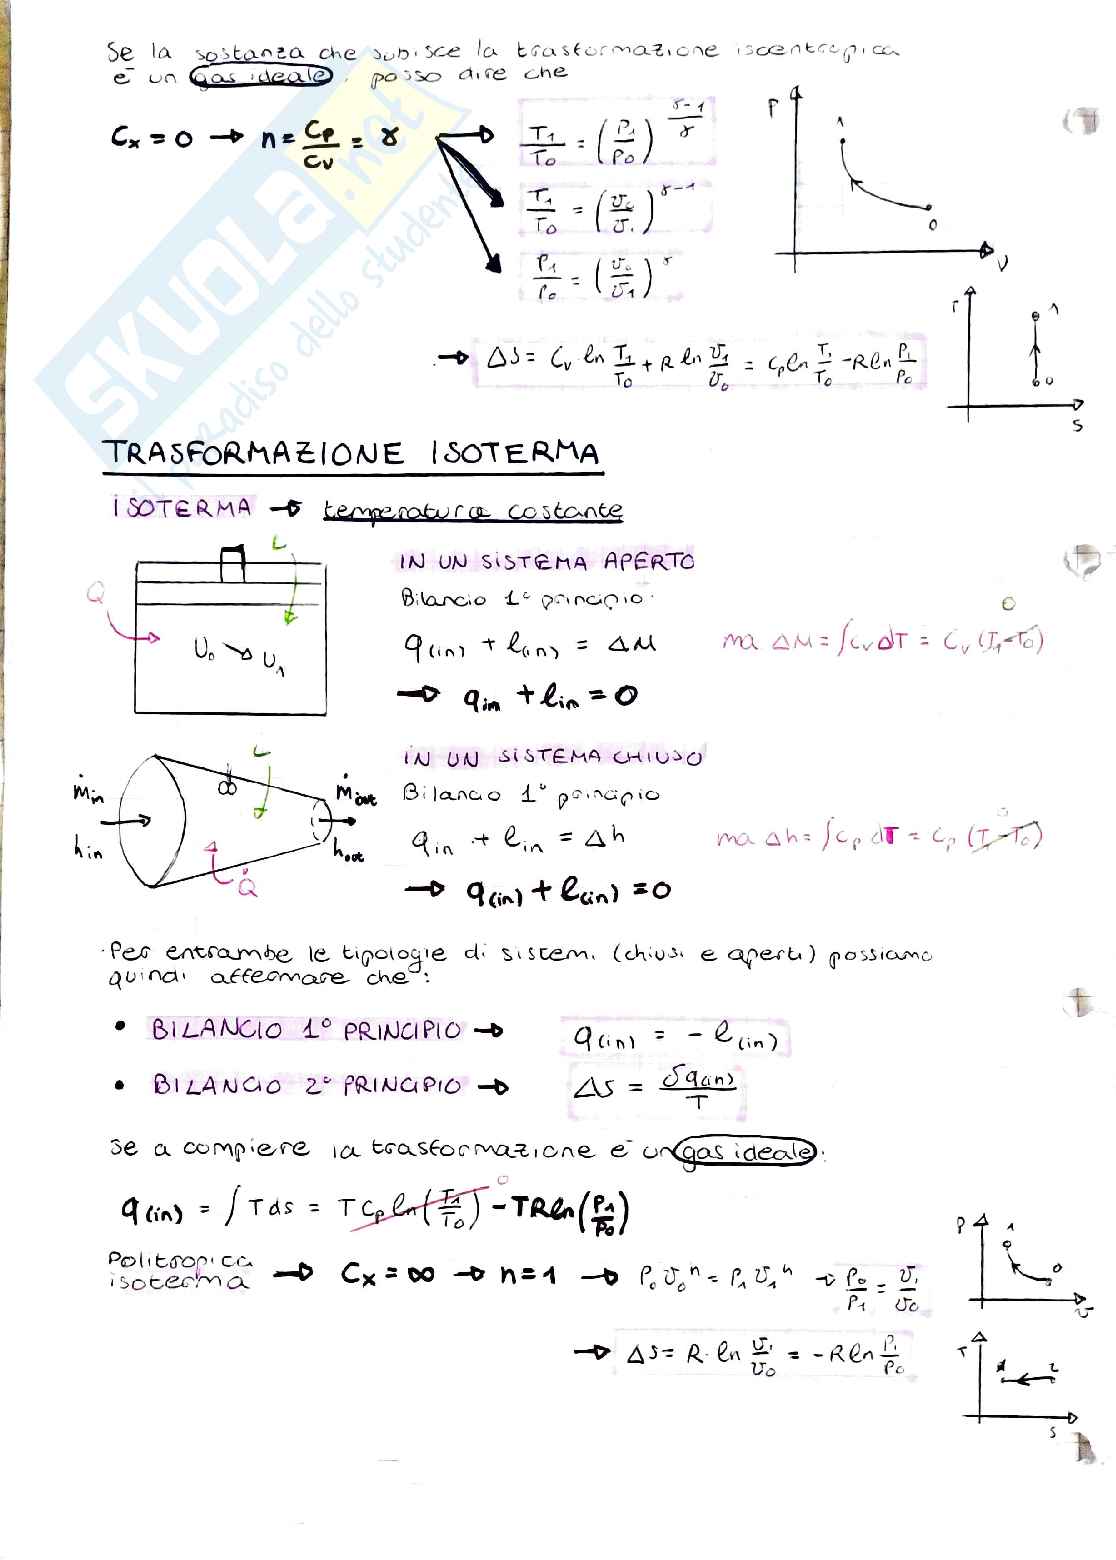 Se la sostanza che subisce la trasformazione isoentropica
è un gas ideale, posso dire che
Cx = 0 → n = Cp/Cv = γ
T1/T0 = (P1/P0)^(γ-1)/γ
T1/T0 = (v0/v1)^γ-1
P1/P0 = (v0/v1)^γ
P
1
0
V
→ ΔS = Cv ln T1/T0 + R ln v1/v0 = Cp ln T1/T0 - R ln P1/P0
T
1
0
S
SKUOLA.net
il paradiso dello studente
TRASFORMAZIONE ISOTERMA
ISOTERMA → temperatura costante
L
Q
U0 → U1
IN UN SISTEMA APERTO
Bilancio 1° principio:
q(in) + l(in) = ΔM ma ΔM = ∫Cv dT = Cv (T1-T0) 0
→ qin + lin = 0
L
ṁin
hin
ṁout
hout
Q̇
IN UN SISTEMA CHIUSO
Bilancio 1° principio
qin + lin = Δh ma Δh = ∫Cp dT = Cp (T1-T0) 0
→ q(in) + l(in) = 0
Per entrambe le tipologie di sistemi (chiusi e aperti) possiamo
quindi affermare che:
• BILANCIO 1° PRINCIPIO → q(in) = - l(in)
• BILANCIO 2° PRINCIPIO → ΔS = δq(in)/T
Se a compiere la trasformazione è un gas ideale:
q(in) = ∫ T ds = T Cp ln(T1/T0) 0 - TR ln(P1/P0)
Politropica
isoterma → Cx = ∞ → n = 1 → P0 v0^n = P1 v1^n → P0/P1 = v1/v0
→ ΔS = R · ln v1/v0 = -R ln P1/P0
P
1
0
v
T
1
2
S